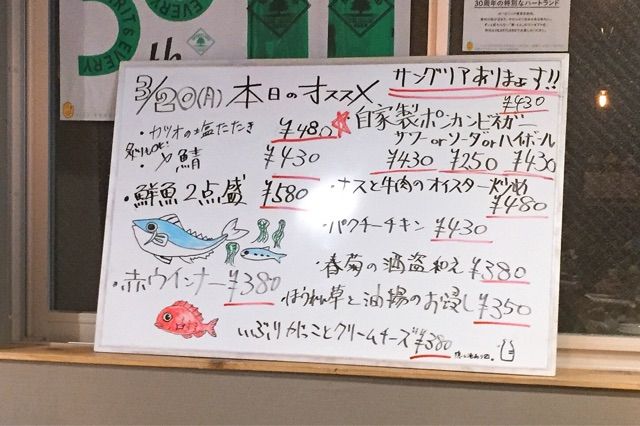 EVERY
th
30周年の特別なハートランド
3/20(月) 本日のオススメ
・カツオの塩たたき ¥480
炙りOK!
・〆鯖 ¥430
・鮮魚2点盛 ¥580
・赤ウインナー ¥380
サングリアあります!!
¥430
☆自家製ポンカンビネガー
サワーorソーダorハイボール
¥430 ¥250 ¥430
・ナスと牛肉のオイスター炒め
¥480
・パクチーチキン ¥430
・春菊の酒盗和え ¥380
・ほうれん草と油揚のお浸し ¥350
・いぶりがっことクリームチーズ ¥380